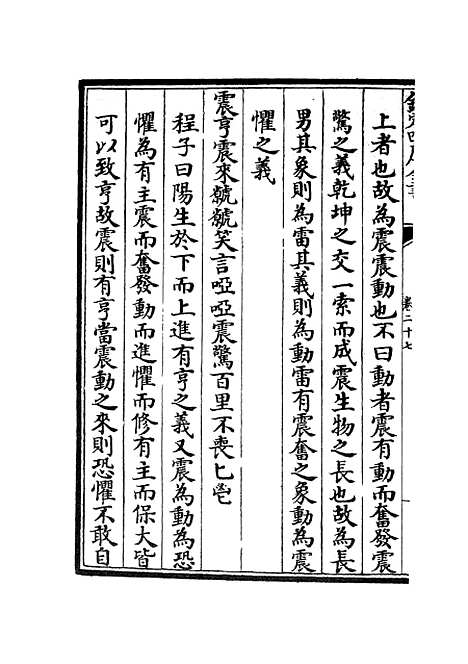 欽定四庫全書
卷二十七
上者也故為震震動也不曰動者震有動而奮發震
驚之義乾坤之交一索而成震生物之長也故為長
男其象則為雷其義則為動雷有震奮之象動為震
懼之義
震亨震來虩虩笑言啞啞震驚百里不喪匕鬯
程子曰陽生於下而上進有亨之義又震為動為恐
懼為有主震而奮發動而進懼而修有主而保大皆
可以致亨故震則有亨當震動之來則恐懼不敢自